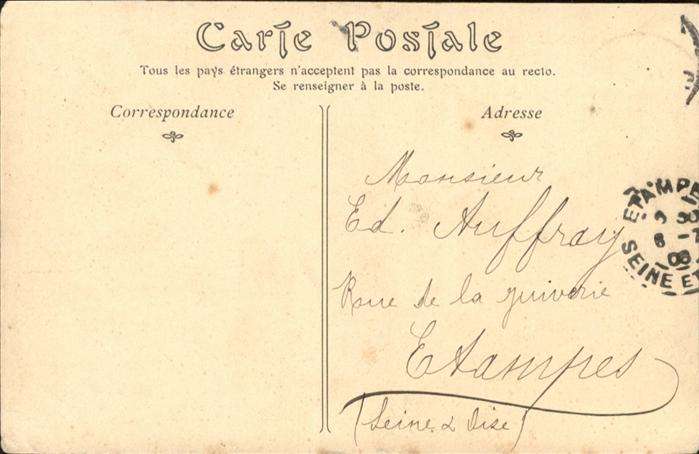 Carte Postale
Tous les pays étrangers n'acceptent pas la correspondance au recto.
Se renseigner à la poste.
Correspondance
Adresse
Monsieur
Ed. Auffray
Rue de la juiverie
Etampes
(Seine & Oise)
ETAMPE
8 -7
08
SEINE ET